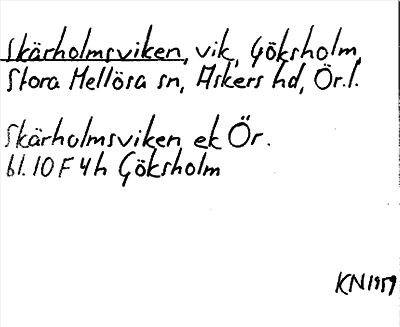 Skärholmsviken, vik, Göksholm,
Stora Mellösa sn, Askers hd, Ör.l.
Skärholmsviken ek Ör.
bl. 10 F 4 h Göksholm
KN 1959